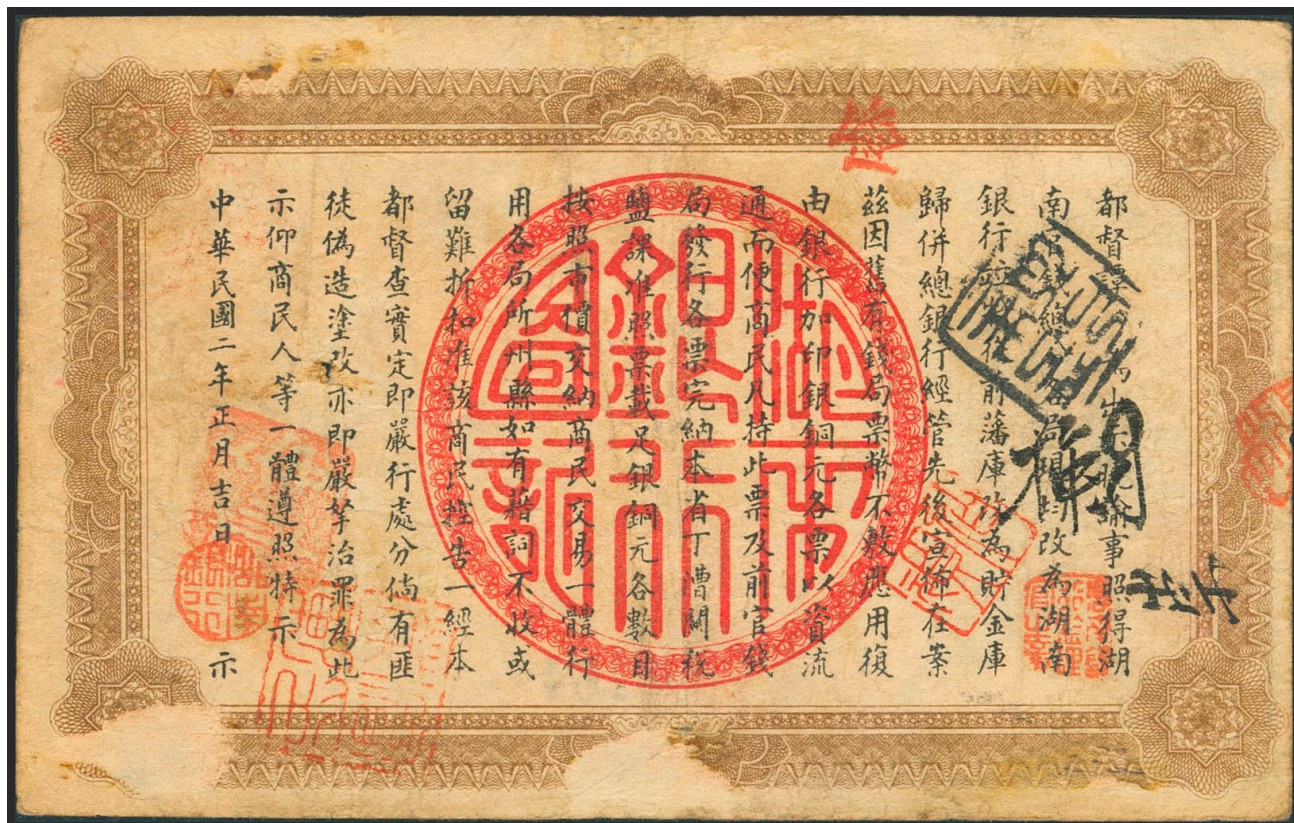 都督譚為出示曉諭事照得湖
南官錢總各局現均改為湖南
銀行前藩庫改為貯金庫
歸併總銀行經管先後宣佈在案
茲因舊有錢局票幣不敷應用復
由銀行加印銀銅元各票以資流
通而便商民凡持此票及前官錢
局發行各票完納本省丁漕關稅
鹽課准照票載足銀銅元各數目
按照市價交納商民交易一體行
用各局所州縣如有藉詞不收或
留難折扣准該商民控告一經本
都督查實定即嚴行處分倘有匪
徒偽造塗改亦即嚴拏治罪為此
示仰商民人等一體遵照特示
中華民國二年正月吉日 示
湖南
銀行
圖記